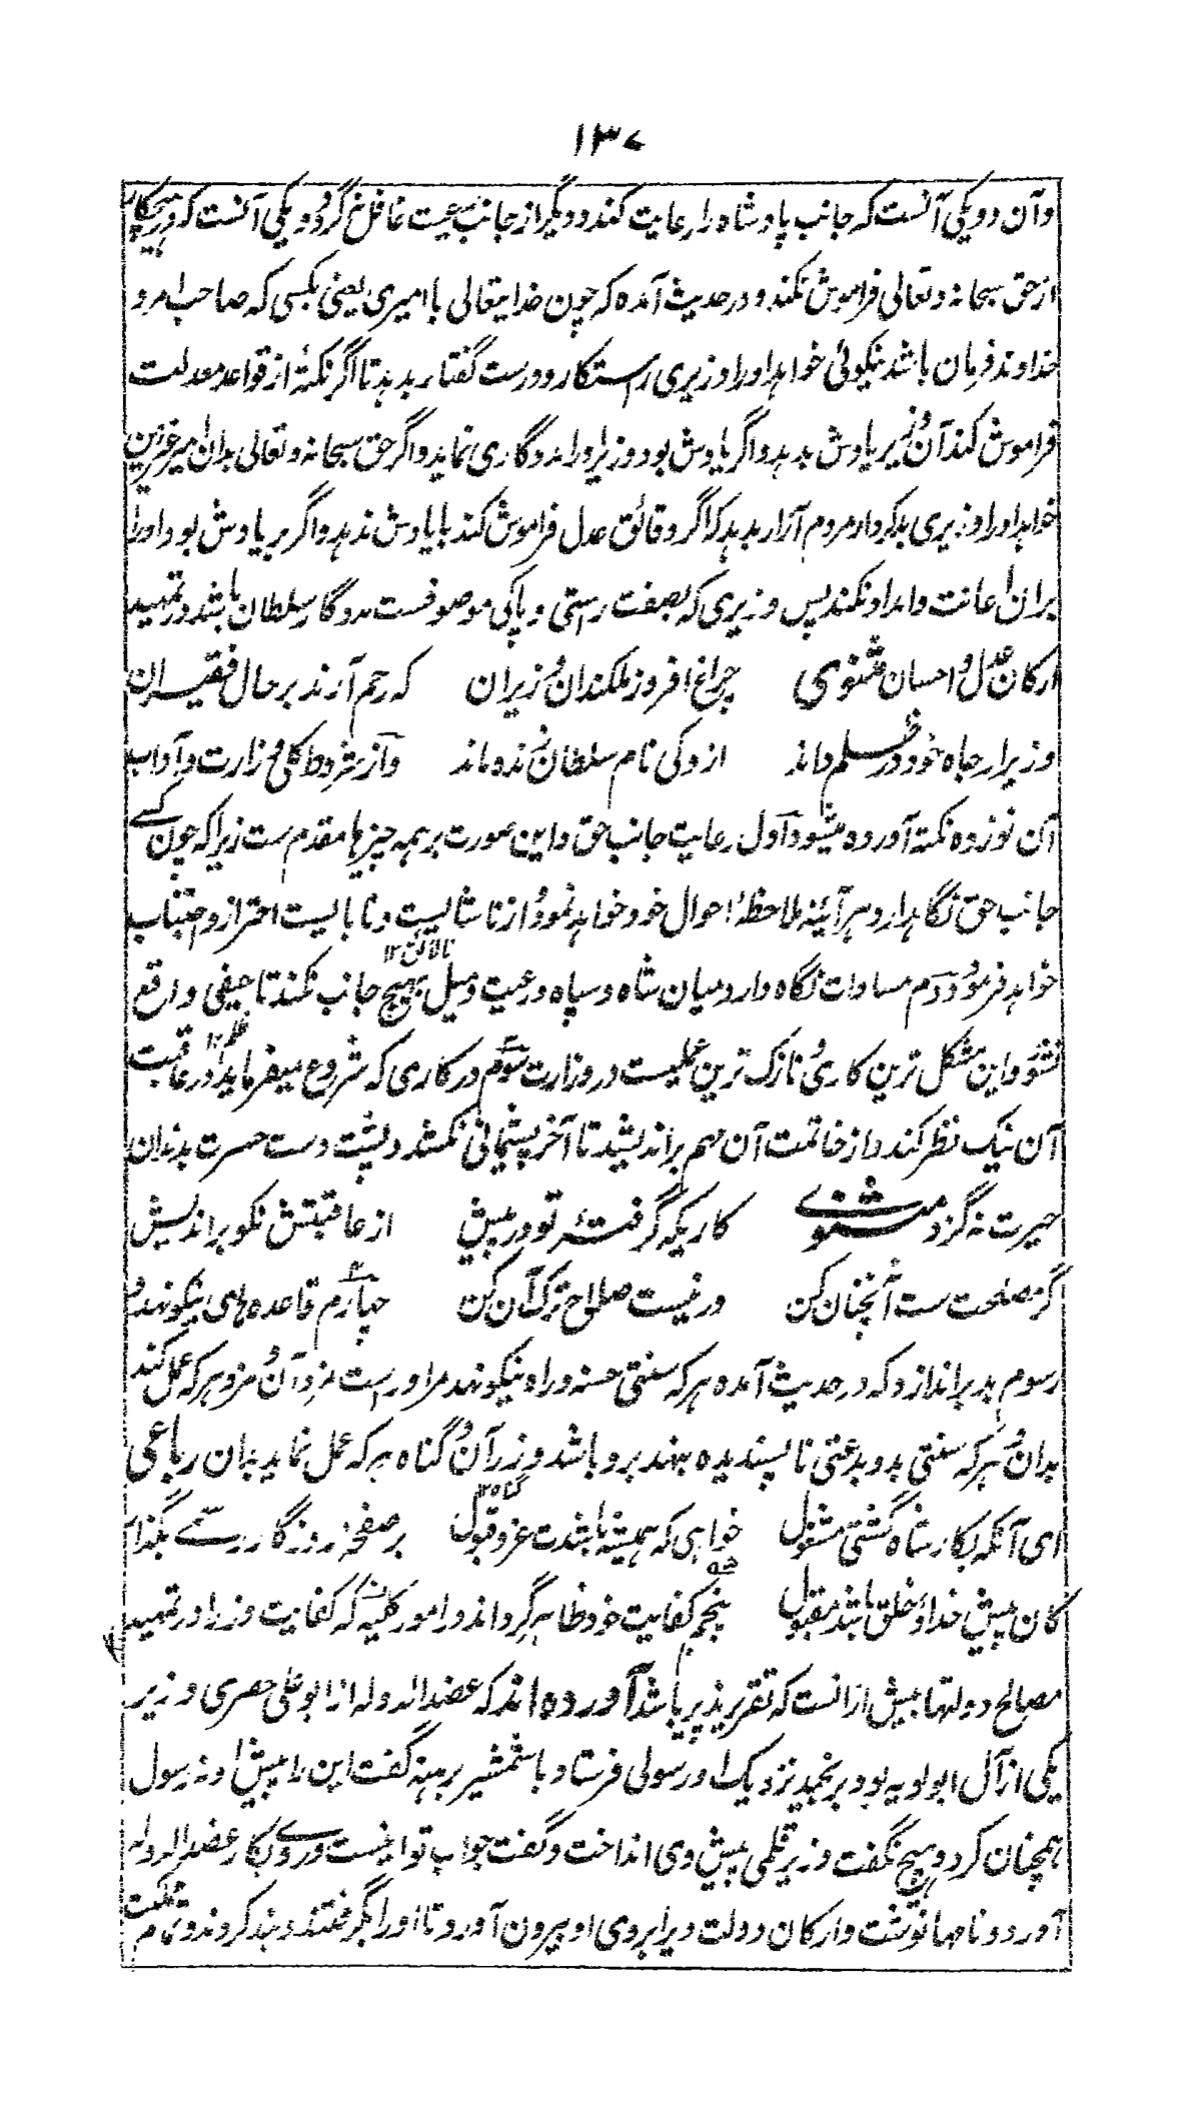 ۱۳۷
وآن دو یکی آنست که جانب پادشاه را رعایت کند و دیگر از جانب رعیت غافل نگردد و یکی آنست که در هیچ کار
از حق سبحانه و تعالی فراموش نکند و در حدیث آمده که چون خدایتعالی با امیری یعنی بکسی که صاحب امر و
خداوند فرمان باشد نیکوئی خواهد او را وزیری راستکار و درست گفتار بدهد تا اگر نکتهٔ از قواعد معدلت
فراموش کند آن وزیر یادش بدهد و اگر یادش بود وزیر او را مددگاری نماید و اگر حق سبحانه و تعالی بدان امیر غیر این
خواهد او را وزیری بدکردار مردم آزار بدهد که اگر دقائق عدل فراموش کند با یادش ندهد و اگر بر یادش بود او را
بران اعانت و امداد نکند پس وزیری که بصفت راستی و پاکی موصوفست مددگار سلطان باشد در تمهید
ارکان عدل و احسان مثنوی چراغ افروز ملکند آن وزیران که رحم آرند بر حال فقیران
وزیر ار جاه خود در ظلم داند ازو کی نام سلطان زنده ماند و از شروط کلی وزارت و آداب
آن نوزده نکته آورده میشود اول رعایت جانب حق و این صورت بر همه چیزها مقدم ست زیرا که چون کسے
جانب حق نگاهدارد هر آئینه ملاحظهٔ احوال خود خواهد نمود و از ناشایست و نابایست احتراز و اجتناب
نالائق۱۲
خواهد فرمود دوم مساوات نگاه دارد میان شاه و سپاه و رعیت و میل بهیچ جانب نکند تا حیفی واقع
ظلم۱۲
نشود و این مشکل ترین کاری و نازک ترین عملیست در وزارت سوم در کاری که شروع میفرماید در عاقبت
آن نیک نظر کند و از خاتمت آن مهم براندیشد تا آخر پشیمانی نکشد و پشت دست حسرت بدندان
حیرت نه گزد مثنوے کاریکه گرفتهٔ تو در پیش از عاقبتش نکو براندیش
گر مصلحت ست آنچنان کن ور نیست صلاح ترک آن کن چهارم قاعده های نیکو نهد و
رسوم بد براندازد که در حدیث آمده هر که سنتی حسنه و راه نیکو نهد مر او راست مزد آن و مزد هر که عمل کند
بدان و هر که سنتی بد و بدعتی ناپسندیده بنهد برو باشد وزر آن و گناه هر که عمل نماید بدان رباعی
گناه۱۲
ای آنکه بکار شاه گشتی مشغول خواهی که همیشه باشدت عز و قبول بر صفحهٔ روزگار رسمے بگذار
کان پیش خدا و خلق باشد مقبول پنجم کفایت خود ظاهر گرداند در امور کلیه که کفایت وزرا در تمهید
مصالح دولتها بیش ازانست که تقریر پذیر باشد آورده اند که عضدالدوله از ابو علی حصری وزیر
یکی از آل ابو لویه بود برنجید نزدیک او رسولی فرستاد با شمشیر برهنه گفت این را پیش او نه رسول
همچنان کرد و هیچ نگفت وزیر قلمی پیش وی انداخت و گفت جواب تو اینست و روے بکار عضدالدوله
آورد و نامها نوشت و ارکان دولت ویرا بروی او بیرون آورد تا او را بگرفتند و بند کردند و تمام مملکت